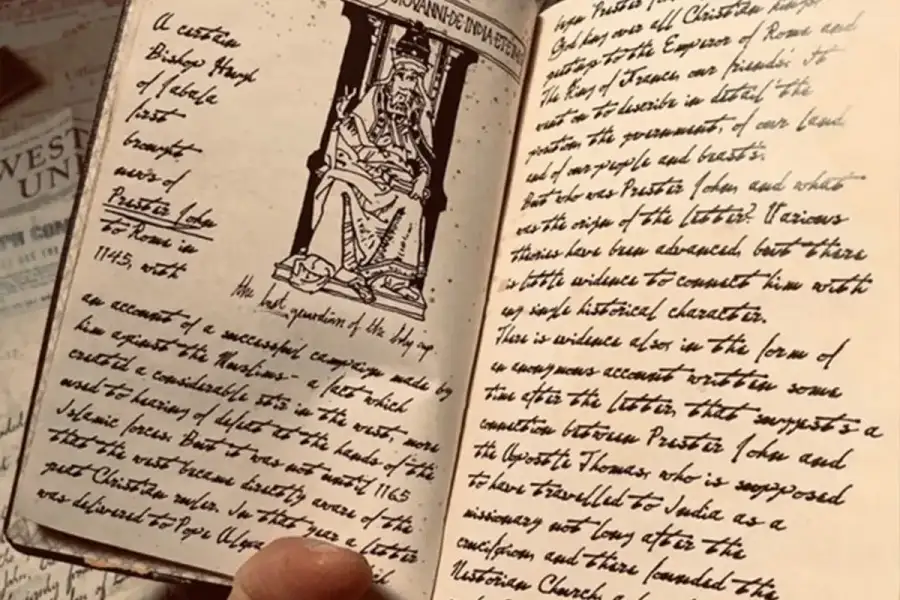 WEST
UN
GIOVANNI·DE·INDIA·ET·ETHI
A certain
Bishop Hugh
of Jabala
first
brought
news of
Prester John
to Rome in
1145, with
the last guardian of the holy cup.
an account of a successful campaign made by
him against the Muslims - a fact which
created a considerable stir in the west, more
used to hearing of defeat at the hands of the
Islamic forces. But it was not until 1165
that the west became directly aware of the
great Christian ruler. In that year a letter
was delivered to Pope
upon Prester
God king over all Christian kings
greetings to the Emperor of Rome and
The King of France, our friends. It
went on to describe in detail the
position, the government, of our land
and of our people and beasts.
But who was Prester John, and what
was the origin of the letter? Various
theories have been advanced, but there
is little evidence to connect him with
any single historical character.
There is evidence also, in the form of
an anonymous account written some
time after the letter, that suggests a
connection between Prester John and
the Apostle Thomas, who is supposed
to have travelled to India as a
missionary not long after the
crucifixion, and there founded the
Nestorian Church,